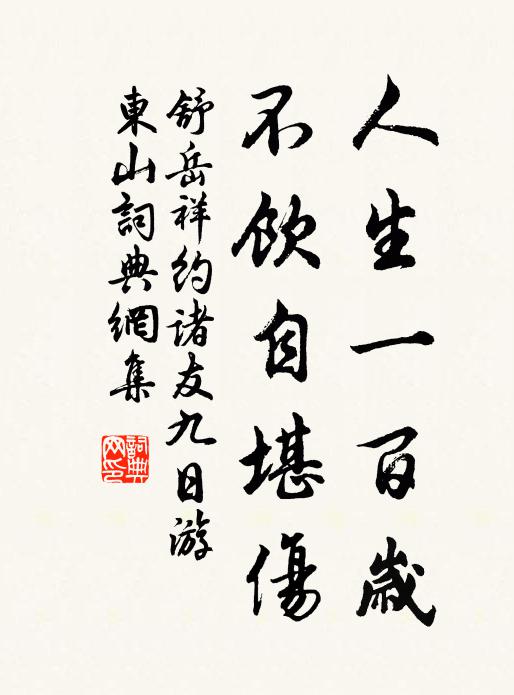 人生一百歲
不飲自堪傷
舒岳祥約諸友九日游
東山詞典網集
詞典
网印